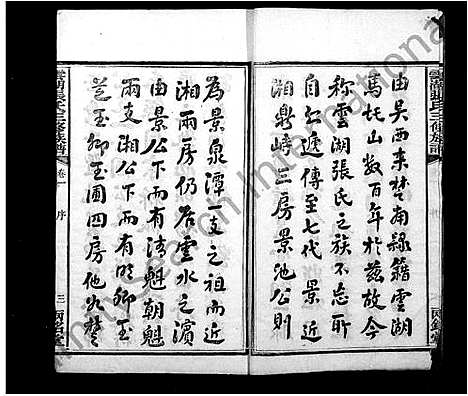 由吴西来楚南隸籍雲湖
馬圫山数百年於茲故今
称雲湖張氏之族不忘所
自仁遞傳至七代景近
湘鼎峙三房景池公則
為景泉潭一支之祖而近
湘兩房仍居雲水之濱
由景公下而有清魁朝魁
兩支湘公下而有明卿玉
芝玉卿玉圃四房他如楚
雲湖張氏三修族譜
卷一
序
三
兩銘堂